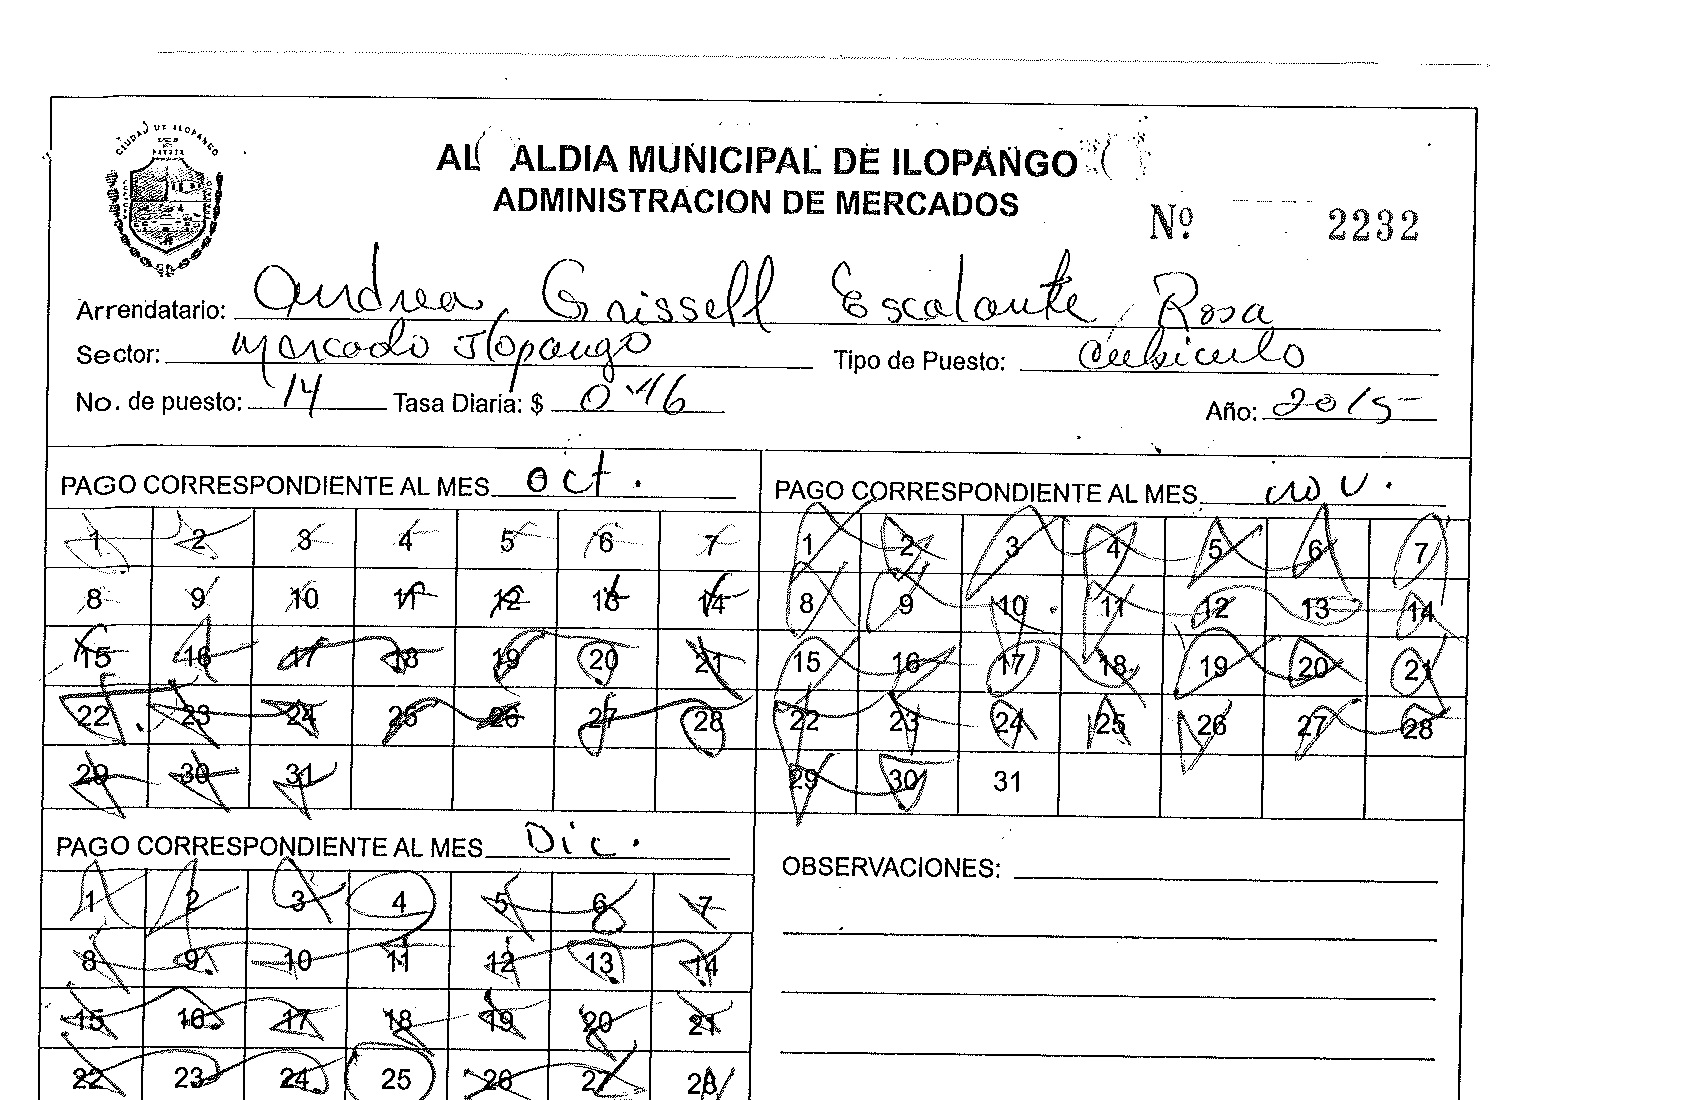 CIUDAD DE ILOPANGO
AL ALDIA MUNICIPAL DE ILOPANGO
ADMINISTRACION DE MERCADOS
Nº 2232
Arrendatario: Andrea Grissell Escalante Rosa
Sector: Mercado Ilopango Tipo de Puesto: Cubiculo
No. de puesto: 14 Tasa Diaria: $ 0.46 Año: 2015
PAGO CORRESPONDIENTE AL MES Oct. PAGO CORRESPONDIENTE AL MES. nov.
1 2 3 4 5 6 7 1 2 3 4 5 6 7
8 9 10 11 12 13 14 8 9 10 11 12 13 14
15 16 17 18 19 20 21 15 16 17 18 19 20 21
22 23 24 25 26 27 28 22 23 24 25 26 27 28
29 30 31 29 30 31
PAGO CORRESPONDIENTE AL MES Dic. OBSERVACIONES:
1 2 3 4 5 6 7
8 9 10 11 12 13 14
15 16 17 18 19 20 21
22 23 24 25 26 27 28